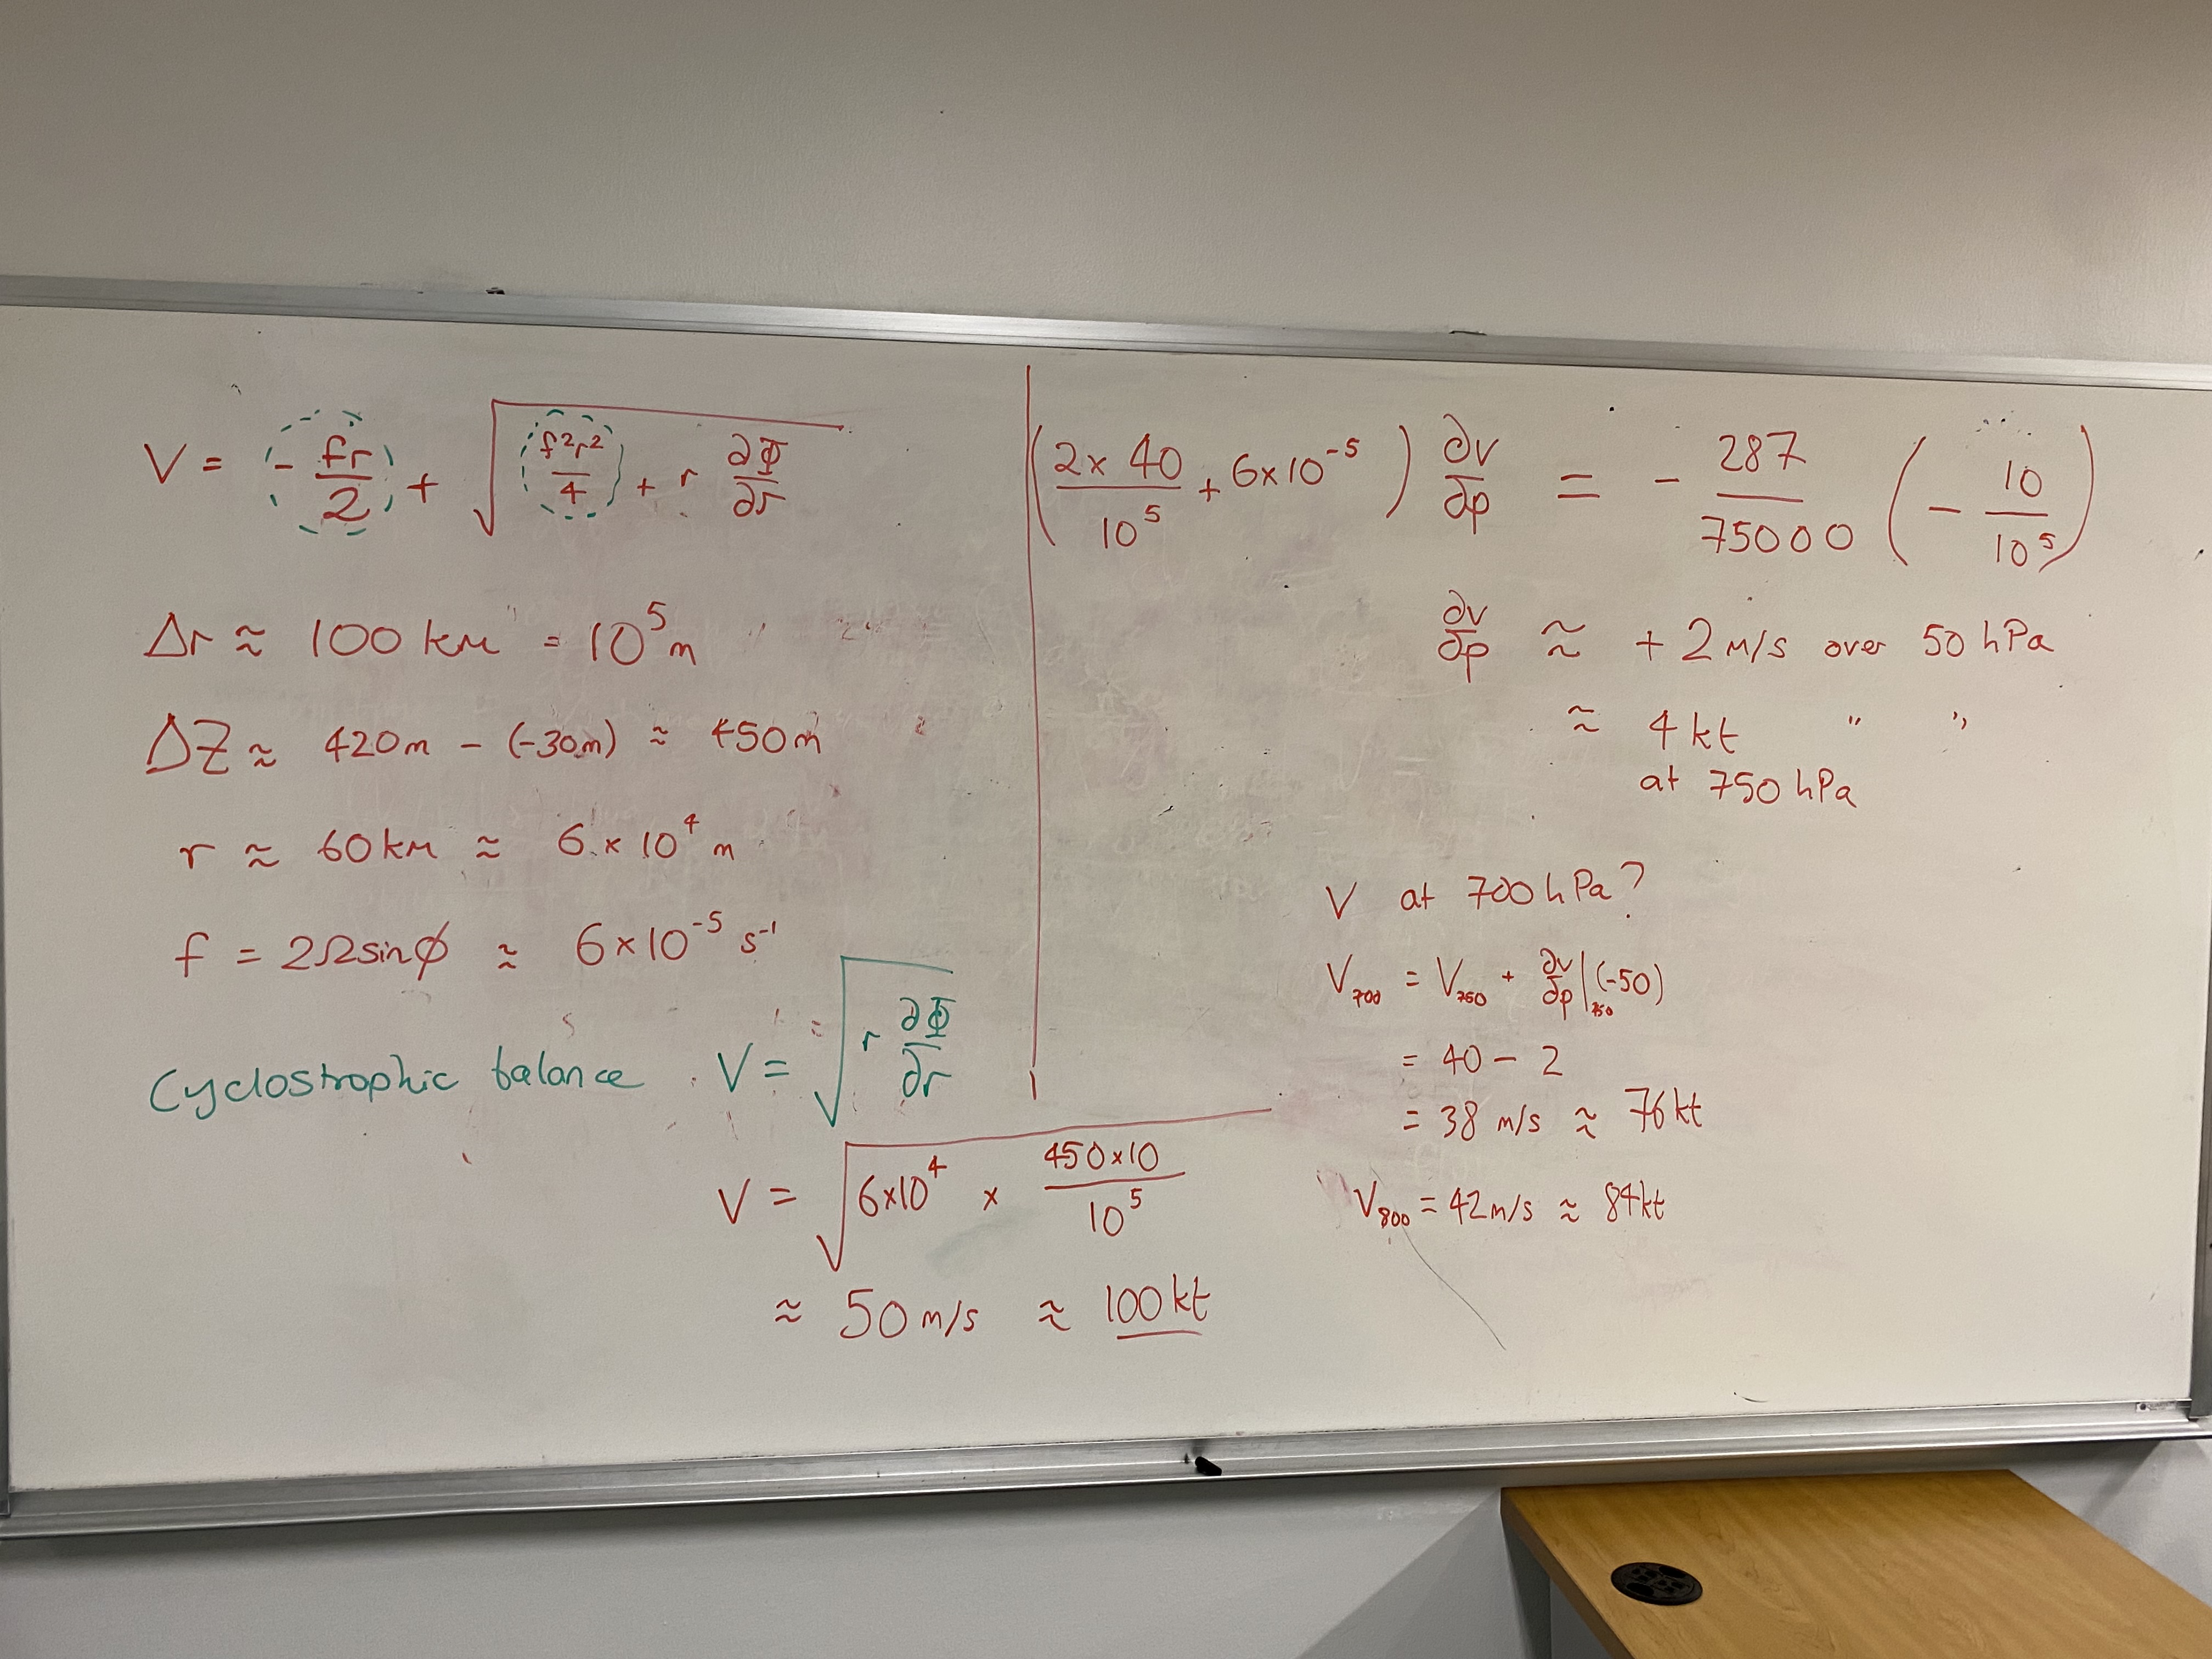 V = - fr/2 + √(f²r²/4 + r ∂Φ/∂r)
Δr ≈ 100 km = 10⁵ m
ΔZ ≈ 420m - (-30m) ≈ 450m
r ≈ 60 km ≈ 6 × 10⁴ m
f = 2Ωsinϕ ≈ 6×10⁻⁵ s⁻¹
Cyclostrophic balance V = √(r ∂Φ/∂r)
V = √(6×10⁴ × 450×10/10⁵)
≈ 50 m/s ≈ 100 kt
(2×40/10⁵ + 6×10⁻⁵) ∂v/∂p = - 287/75000 (- 10/10⁵)
∂v/∂p ≈ + 2 m/s over 50 hPa
≈ 4 kt " "
at 750 hPa
V at 700 hPa?
V₇₀₀ = V₇₅₀ + ∂v/∂p|₇₅₀ (-50)
= 40 - 2
= 38 m/s ≈ 76 kt
V₈₀₀ = 42 m/s ≈ 84 kt